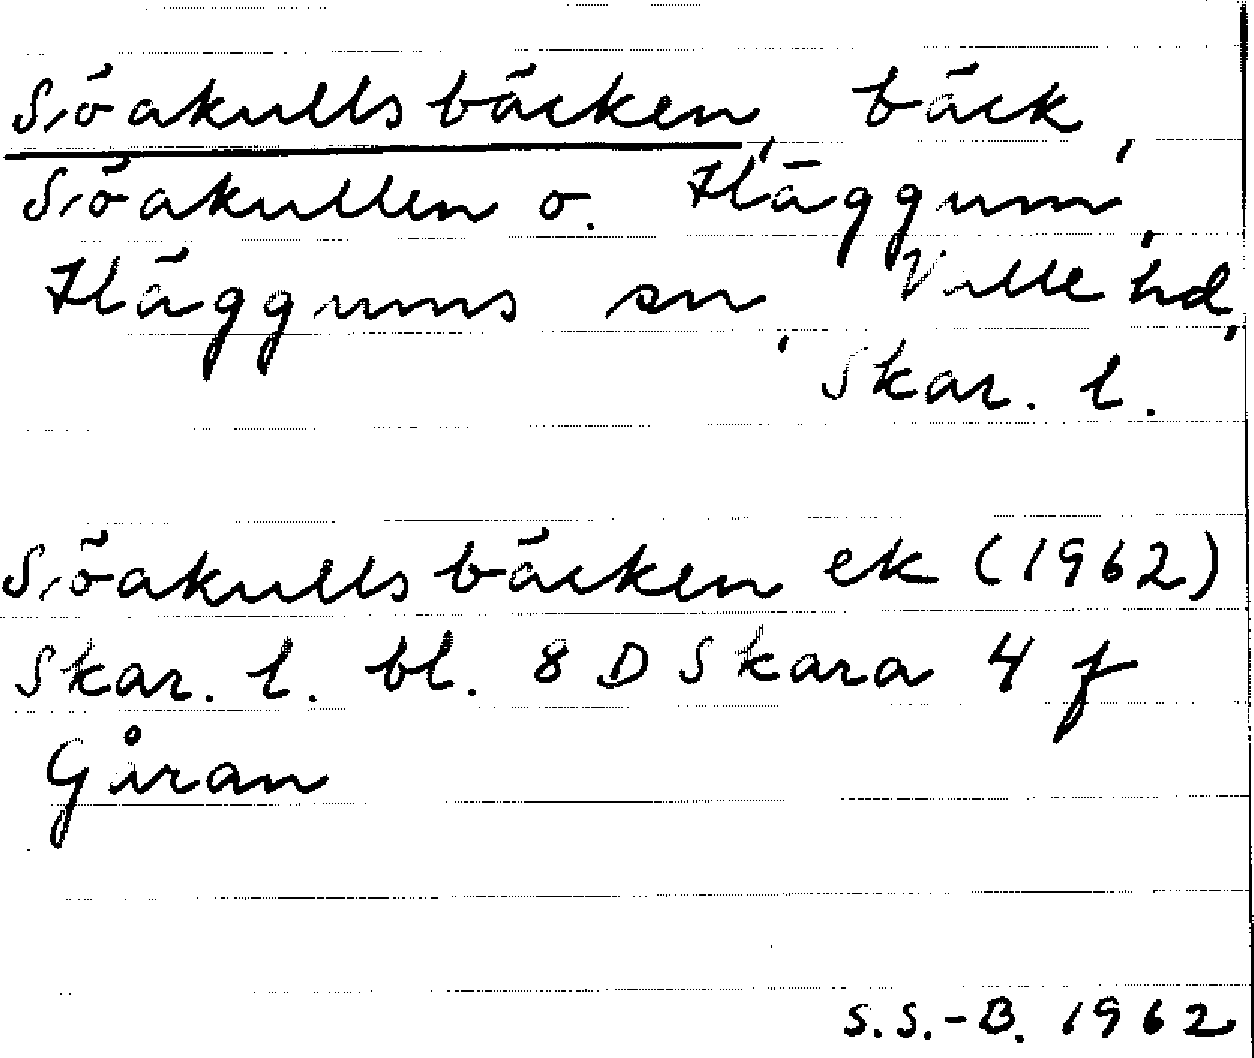 Sjöakullsbäcken, bäck,
Sjöakullen o. Häggum,
Häggums sn, Valle hd,
Skar. l.
Sjöakullsbäcken ek (1962)
Skar. l. bl. 8 D Skara 4 f
Gåran
S.S.-B. 1962